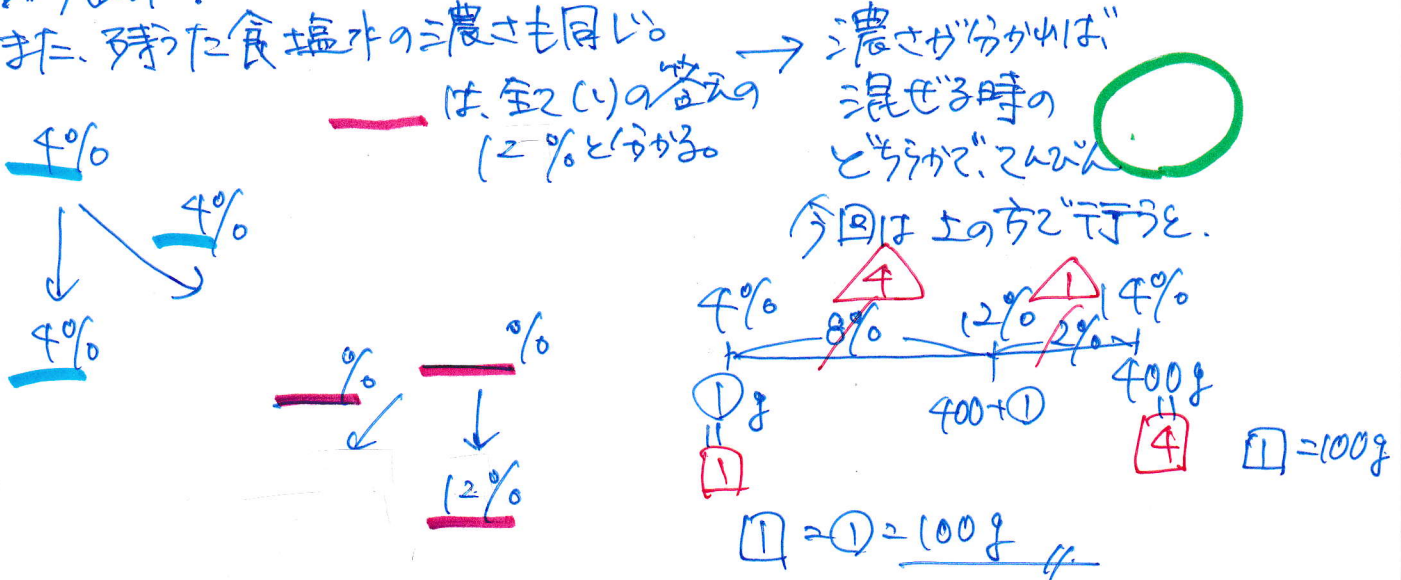 また、残った食塩水の濃さも同じ。
は、全て(1)の答えの
12%と分かる。
→ 濃さが分かれば、
混ぜる時の
どちらかで、てんびん
今回は上の方で行うと、
4%
4%
4%
%
%
12%
4 1
4% 12% 14%
8% 2%
①g 400+① 400g
1 4
1=100g
1=①=100g